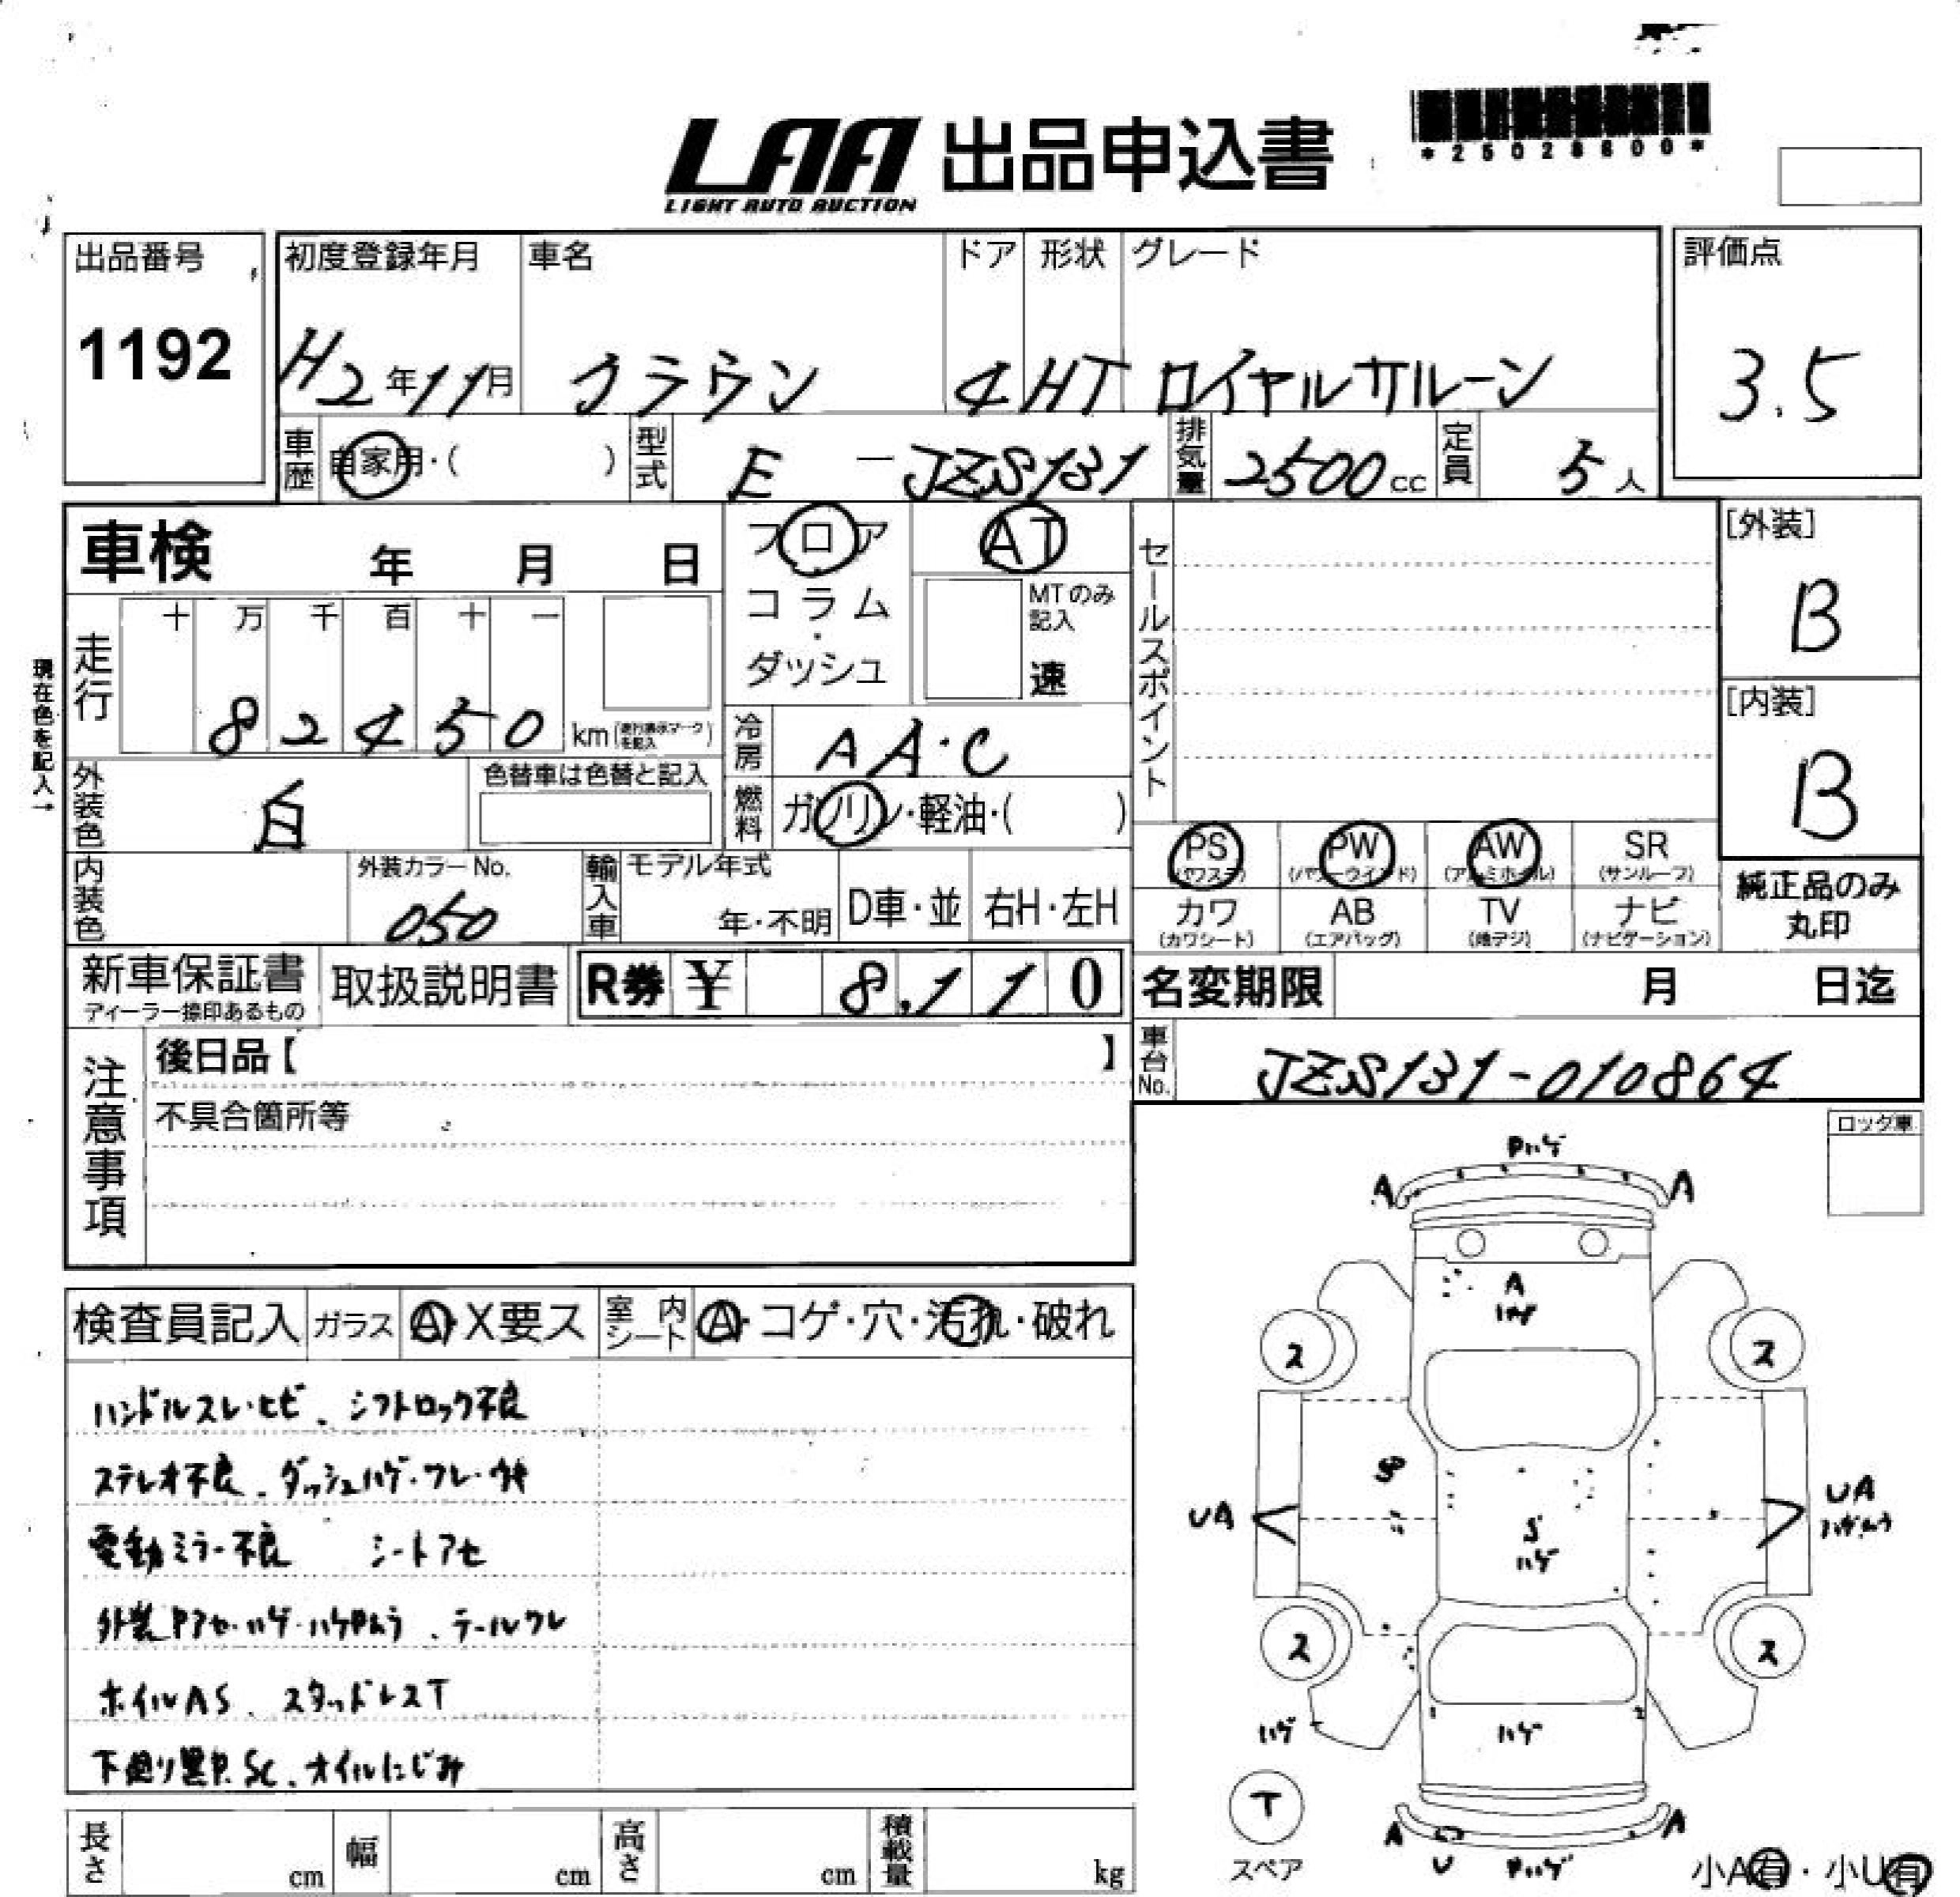 LAA 出品申込書
LIGHT AUTO AUCTION
*25028600*
出品番号 初度登録年月 車名 ドア 形状 グレード 評価点
1192 H2年11月 クラウン 4 HT ロイヤルサルーン 3.5
車歴 自家用・( ) 型式 E-JZS131 排気量 2500cc 定員 5人
車検 年 月 日
フロア
コラム
・
ダッシュ
AT
MTのみ
記入
速
セールスポイント
[外装]
B
[内装]
B
現在色を記入→
走行 十 万 千 百 十 一
82450 km (走行表示マークを記入)
冷房 AA・C
外装色 白 色替車は色替と記入
燃料 ガソリン・軽油・( )
内装色 外装カラーNo. 050
輸入車 モデル年式 年・不明 D車・並 右H・左H
PS (パワステ) PW (パワーウインド) AW (アルミホイル) SR (サンルーフ)
カワ (カワシート) AB (エアバッグ) TV (地デジ) ナビ (ナビゲーション)
純正品のみ
丸印
新車保証書 ディーラー捺印あるもの 取扱説明書 R券 ¥ 8,110
名変期限 月 日迄
注意事項
後日品【 】
不具合箇所等
車台No. JZS131-010864
検査員記入 ガラス A・X要ス 室内シート A・コゲ・穴・汚れ・破れ
ハンドルスレ・ヒビ、シフトロック不良
ステレオ不良、ダッシュハゲ・ワレ・ウキ
電動ミラー不良 シートアセ
外装Pアセ・ハゲ・ハゲPムラ、テールワレ
ホイルAS、スタッドレスT
下廻り黒P.SC、オイルにじみ
長さ cm 幅 cm 高さ cm 積載量 kg
ロック車
Pハゲ
A A
A
ハゲ
ス ス
UA UA
S
ハゲ
ス ス
ハゲ ハゲ
T
スペア
A A
U Pハゲ
小A有・小U有